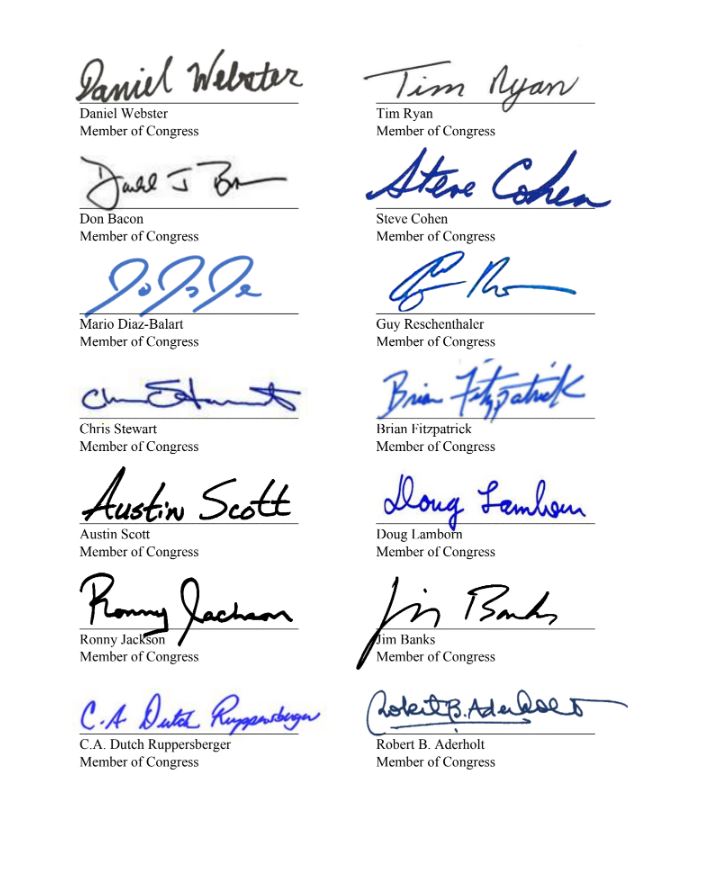 Daniel Webster Tim Ryan
Daniel Webster Tim Ryan
Member of Congress Member of Congress
Steve Cohen
Don Bacon Steve Cohen
Member of Congress Member of Congress
Mario Diaz-Balart Guy Reschenthaler
Member of Congress Member of Congress
Chris Stewart Brian Fitzpatrick
Chris Stewart Brian Fitzpatrick
Member of Congress Member of Congress
Austin Scott Doug Lamborn
Austin Scott Doug Lamborn
Member of Congress Member of Congress
Ronny Jackson Jim Banks
Ronny Jackson Jim Banks
Member of Congress Member of Congress
C.A Dutch Ruppersberger Robert B. Aderholt
C.A. Dutch Ruppersberger Robert B. Aderholt
Member of Congress Member of Congress